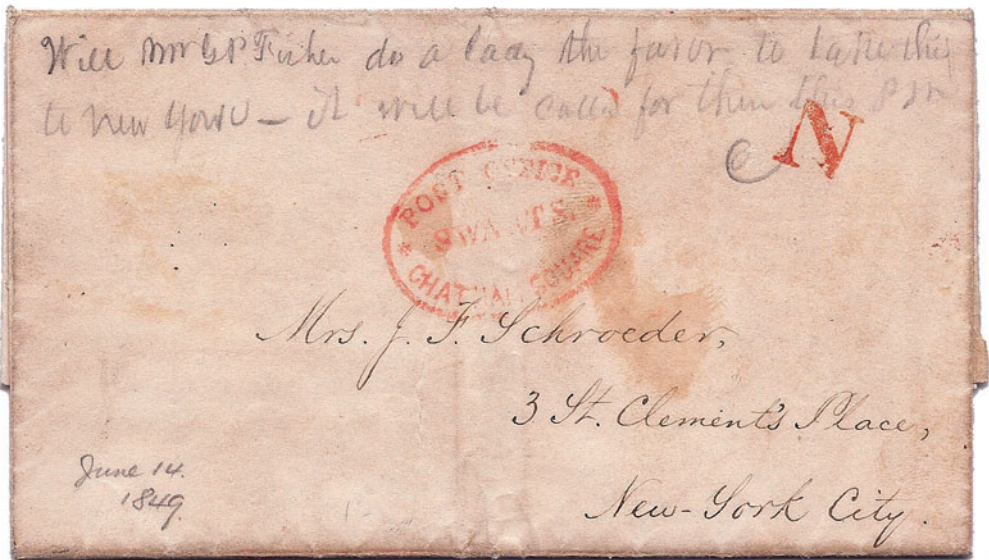 Will Mr G P Fisher do a lady the favor to take this
to New York – it will be called for then this P M
N
C
POST OFFICE
SWARTS.
CHATHAM SQUARE
Mrs. J. F. Schroeder,
3 St. Clement's Place,
New-York City.
June 14.
1849.